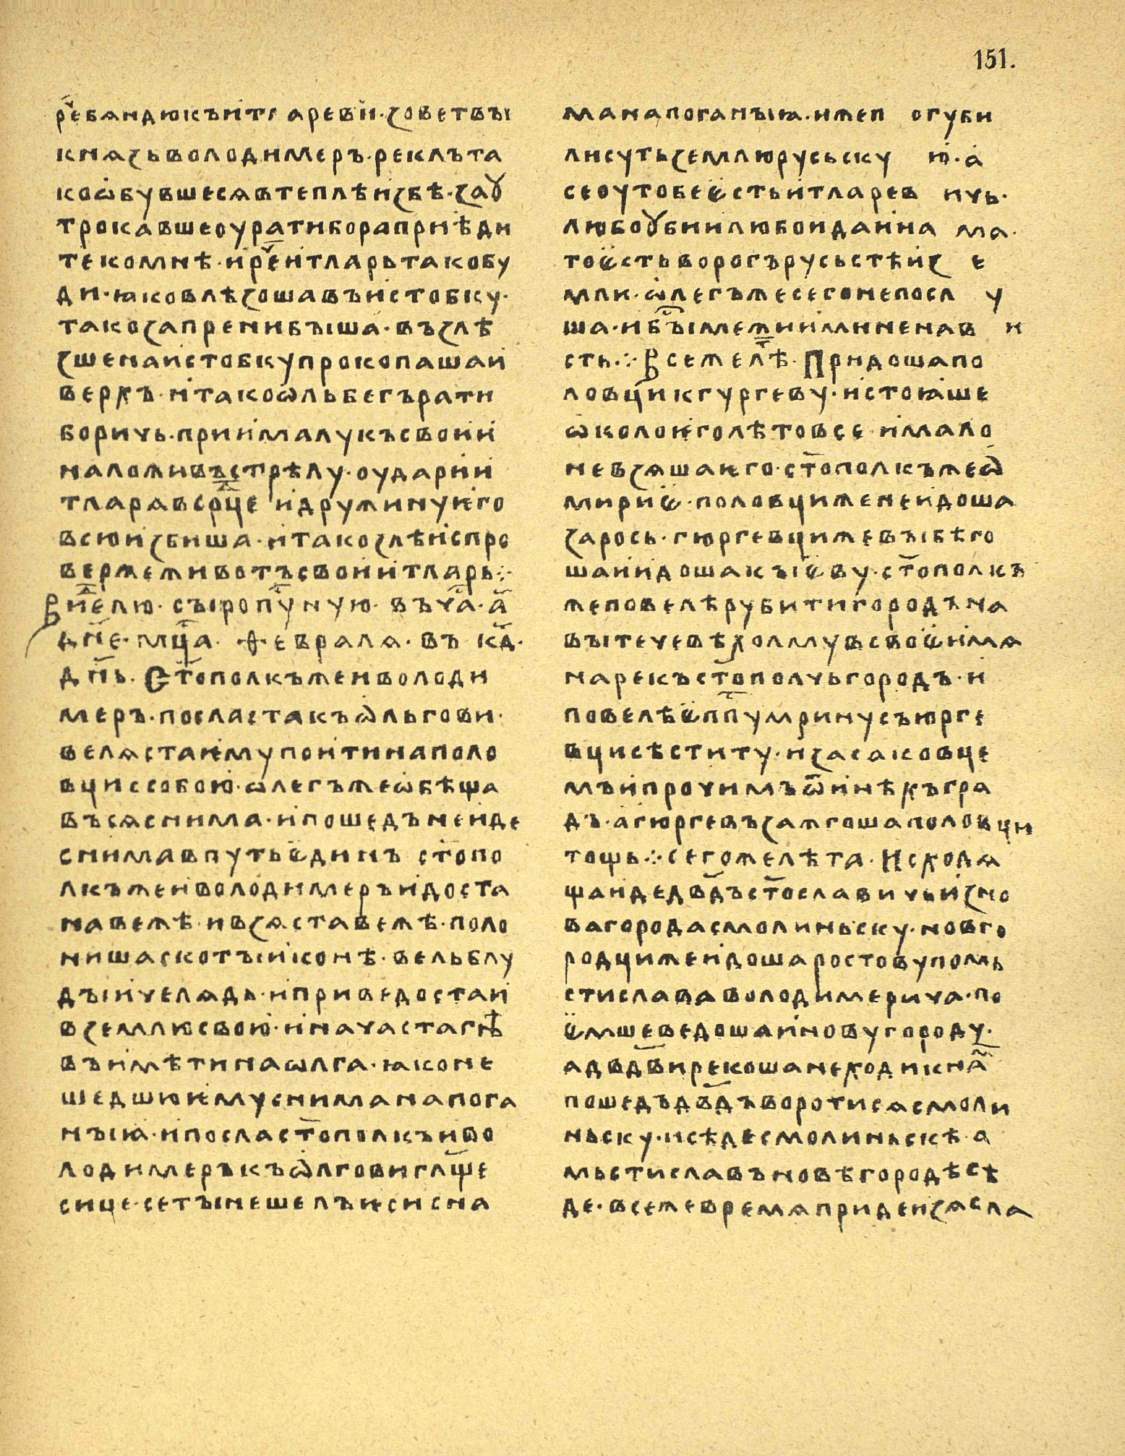 151.
рⷱ҇е бѧндюкъ итларевѝ · зоветь въı
кнѧзь володимеръ · реклъ та
ко ѡбувшесѧ в теплѣ избѣ · заꙋ
трокавше оу ратибора приѣди
те ко мнѣ · и рⷱ҇е итларь тако бу
ди · ꙗко влѣзоша въ истобку ·
тако запрени бъıша · възлѣ
зше на истобку прокопаша и
верхъ · и тако ѡльбегъ рати
боричь · приима лукъ свои и
наложивъ стрѣлу · оудари и
тларѧ в срⷣце и дружину ѥго
всю избиша · и тако злѣ испро
верже животъ свои итларь ·:·
В нⷣелю · съıропуⷭную · въ чⷭа · а҃
дн҃е · мцⷭ҇а · февралѧ · въ кд҃ ·
дн҃ь · Ст҃ополкъ же и володи
меръ · посласта къ ѡльгови ·
велѧста ѥму поити на поло
вци с собою · ѡлегъ же ѡбѣща
въсѧ с нима · и пошедъ не иде
с нима в путь ѥдинъ ст҃опо
лкъ же и володимеръ идоста
на вежѣ · и взѧста вежѣ · поло
ниша скотъı и конѣ · вельблу
дъı и челѧдь · и приведоста и
в землю свою · и начаста гнѣ
въ имѣти на ѡлга · ꙗко не
шедшю ѥму с нима на пога
нъıꙗ · и посла ст҃ополкъ и во
лодимеръ къ ѡлгови гл҃ще
сице · се тъı не шелъ ѥси с на
ма на поганъıꙗ · иже п огуби
ли суть землю русьску ю · а
се оу тобе ѥсть итларев ичь ·
любо ꙋбии любо и даи на ма ·
то ѥсть ворогъ русьстѣи з е
мли · ѡлегъ же сего не посл у
ша · и бъıⷭ межи ими ненав и
сть ·:· В се же лѣⷮ · Придоша по
ловци к гургеву · и стоꙗше
ѡколо ѥго лѣто все и мало
не взѧша ѥго · ст҃ополкъ же ѡ
мири ѥ · половци же не идоша
за рось · гюргевци же въıбѣго
ша и идоша къıѥву · ст҃ополкъ
же повелѣ рубити городъ на
вътечевѣ холму в свое имѧ
нарекъ ст҃ополчь городъ · и
повелѣ ѥпⷭпу мрину съ юрге
вци сѣсти ту · и засаковце
мъ и прочимъ ѿ инѣхъ гра
дъ · а гюргевъ зажгоша половци
тощь ·:· Сего же лѣта · Исходѧ
ща иде дв҃дъ ст҃ославичь из но
вагорода смолиньску · новго
родци же идоша ростову по мь
стислава володимерича · по
ѥмше ведоша и новугороду ·
а дв҃дви рекоша не ходи к наⷨ
пошедъ дв҃дъ воротисѧ смоли
ньску · и сѣде смолиньскѣ · а
мьстиславъ новѣгородѣ сѣ
де · в се же времѧ приде изѧсла